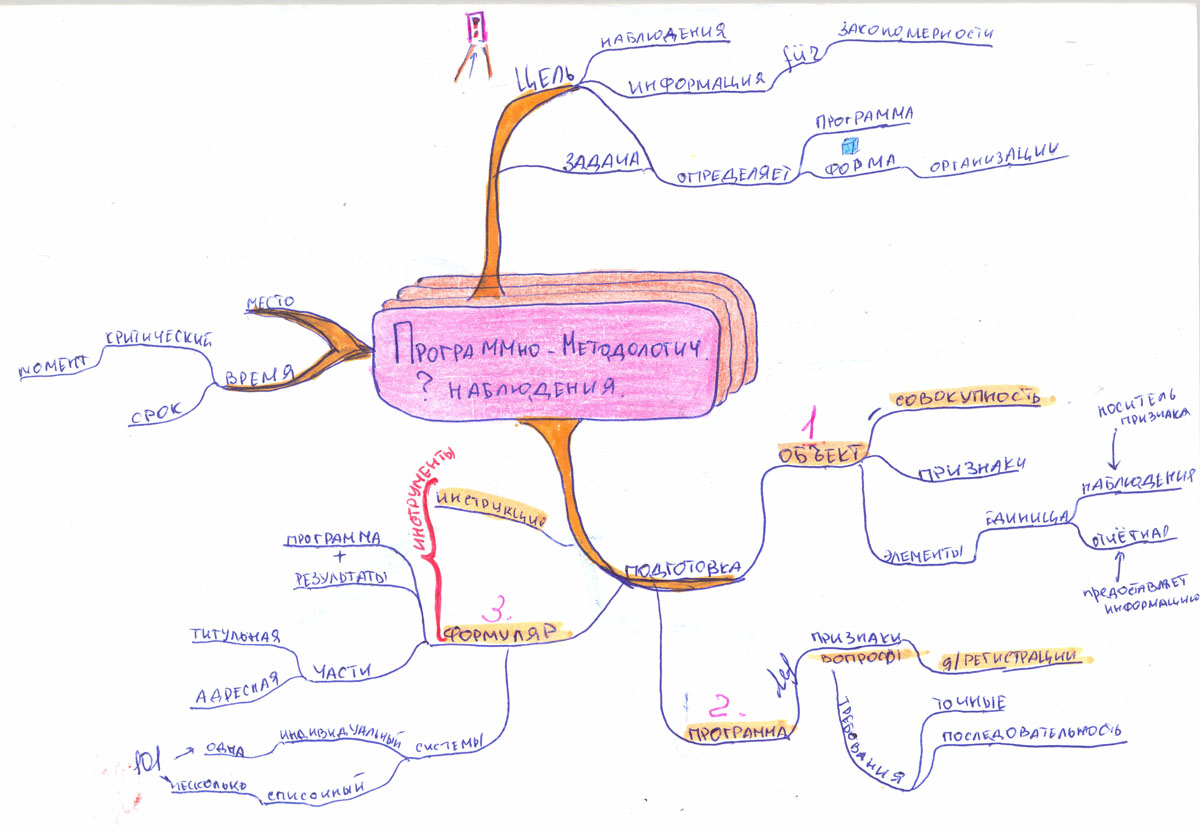 ЦЕЛЬ
НАБЛЮДЕНИЯ
ИНФОРМАЦИЯ
für
ЗАКОНОМЕРНОСТИ
ЗАДАЧА
ОПРЕДЕЛЯЕТ
ПРОГРАММА
ФОРМА
ОРГАНИЗАЦИИ
МЕСТО
ВРЕМЯ
КРИТИЧЕСКИЙ
МОМЕНТ
СРОК
ПРОГРАММНО-МЕТОДОЛОГИЧ.
? НАБЛЮДЕНИЯ.
1
ОБЪЕКТ
СОВОКУПНОСТЬ
ПРИЗНАКИ
ЭЛЕМЕНТЫ
ЕДИНИЦА
НОСИТЕЛЬ
ПРИЗНАКА
НАБЛЮДЕНИЯ
ОТЧЁТНАЯ
ПРЕДОСТАВЛЯЕТ
ИНФОРМАЦИЮ
ПОДГОТОВКА
ИНСТРУМЕНТЫ
ИНСТРУКЦИЮ
3.
ФОРМУЛЯР
ПРОГРАММА
+
РЕЗУЛЬТАТЫ
ЧАСТИ
ТИТУЛЬНАЯ
АДРЕСНАЯ
СИСТЕМЫ
ИНДИВИДУАЛЬНЫЙ
ОДНА
СПИСОЧНЫЙ
НЕСКОЛЬКО
2.
ПРОГРАММА
def
ПРИЗНАКИ
ВОПРОСЫ
Д/РЕГИСТРАЦИИ
ТРЕБОВАНИЯ
ТОЧНЫЕ
ПОСЛЕДОВАТЕЛЬНОСТЬ